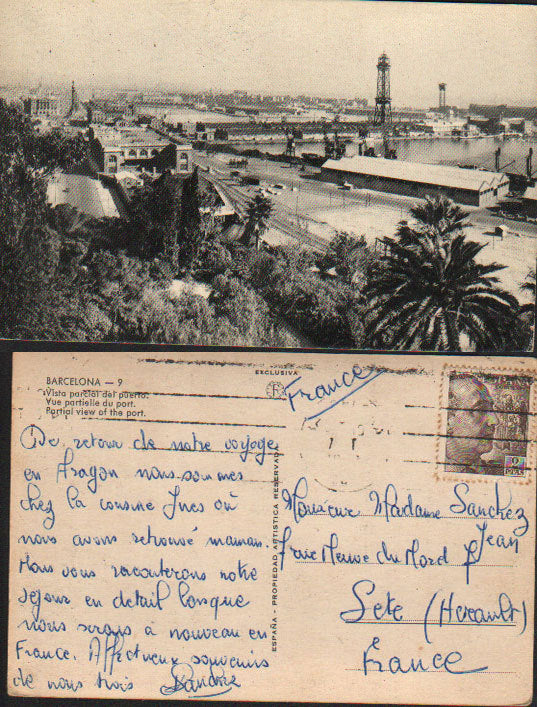 BARCELONA — 9
Vista parcial del puerto.
Vue partielle du port.
Partial view of the port.
EXCLUSIVA
France
De retour de notre voyage
en Aragon nous sommes
chez la cousine Ines où
nous avons retrouvé maman.
Nous vous raconterons notre
séjour en détail lorsque
nous serons à nouveau en
France. Affectueux souvenirs
de nous trois
ESPAÑA - PROPIEDAD ARTISTICA RESERVADA
2
PTA
Monsieur Madame Sanchez
Jean
rue Neuve du Nord
Sete (Herault)
France